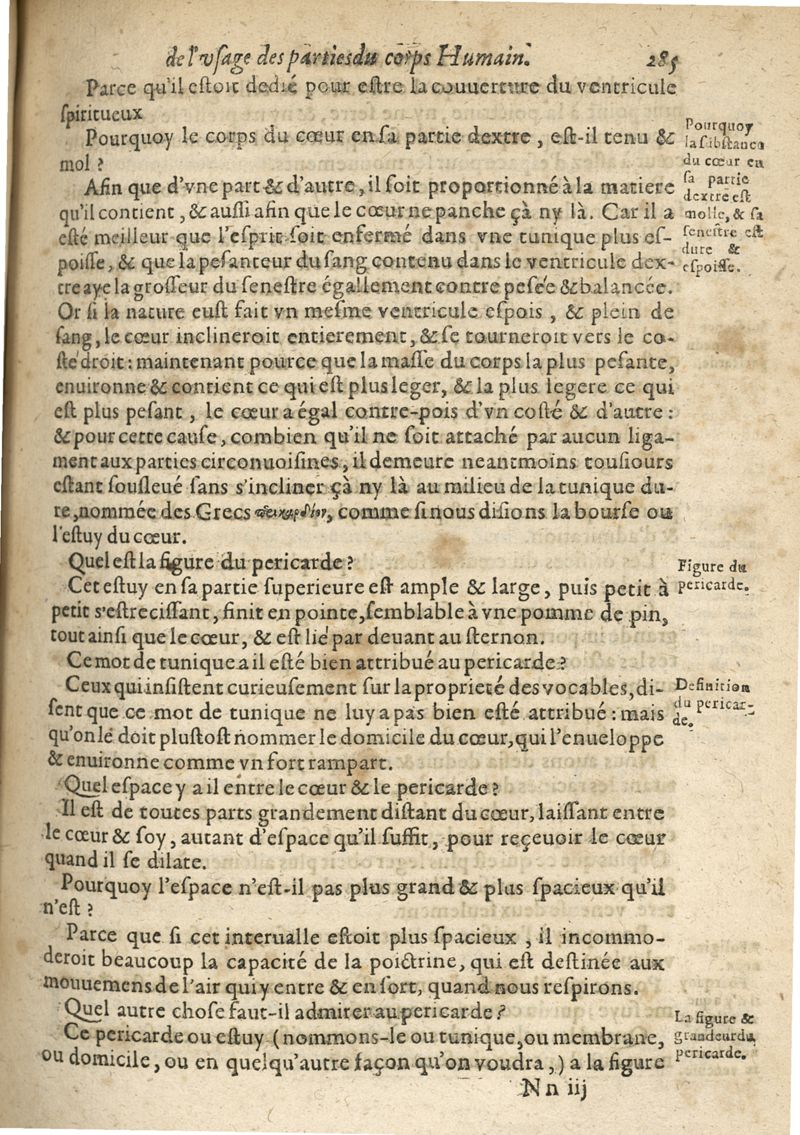 de l'vsage des parties du corps Humain. 285
Parce qu'il estoit dedié pour estre la couuerture du ventricule
spiritueux
Pourquoy le corps du cœur en sa partie dextre, est-il tenu &
mol ?
Pourquoy
la substance
du cœur en
sa partie
dextre est
molle, & sa
senestre est
dure &
espoisse.
Afin que d'vne part & d'autre, il soit proportionné à la matiere
qu'il contient, & aussi afin que le cœur ne panche çà ny là. Car il a
esté meilleur que l'esprit soit enfermé dans vne tunique plus es-
poisse, & que la pesanteur du sang contenu dans le ventricule dex-
tre aye la grosseur du senestre égallement contre pesée & balancée.
Or si la nature eust fait vn mesme ventricule espois, & plein de
sang, le cœur inclineroit entierement, & se tourneroit vers le co-
sté droit : maintenant pource que la masse du corps la plus pesante,
enuironne & contient ce qui est plus leger, & la plus legere ce qui
est plus pesant, le cœur a égal contre-pois d'vn costé & d'autre :
& pour cette cause, combien qu'il ne soit attaché par aucun liga-
ment aux parties circonuoisines, il demeure neantmoins tousiours
estant sousleué sans s'incliner çà ny là au milieu de la tunique du-
re, nommée des Grecs , comme si nous disions la bourse ou
l'estuy du cœur.
Quel est la figure du pericarde ?
Figure du
pericarde.
Cet estuy en sa partie superieure est ample & large, puis petit à
petit s'estrecissant, finit en pointe, semblable à vne pomme de pin,
tout ainsi que le cœur, & est lié par deuant au sternon.
Ce mot de tunique a il esté bien attribué au pericarde ?
Ceux qui insistent curieusement sur la proprieté des vocables, di-
Definition
du pericar-
de.
sent que ce mot de tunique ne luy a pas bien esté attribué : mais
qu'on le doit plustost nommer le domicile du cœur, qui l'enueloppe
& enuironne comme vn fort rampart.
Quel espace y a il entre le cœur & le pericarde ?
Il est de toutes parts grandement distant du cœur, laissant entre
le cœur & soy, autant d'espace qu'il suffit, pour reçeuoir le cœur
quand il se dilate.
Pourquoy l'espace n'est-il pas plus grand & plus spacieux qu'il
n'est ?
Parce que si cet interualle estoit plus spacieux, il incommo-
deroit beaucoup la capacité de la poictrine, qui est destinée aux
mouuemens de l'air qui y entre & en sort, quand nous respirons.
Quel autre chose faut-il admirer au pericarde ?
La figure &
grandeur du
pericarde.
Ce pericarde ou estuy (nommons-le ou tunique, ou membrane,
ou domicile, ou en quelqu'autre façon qu'on voudra,) a la figure
N n iij